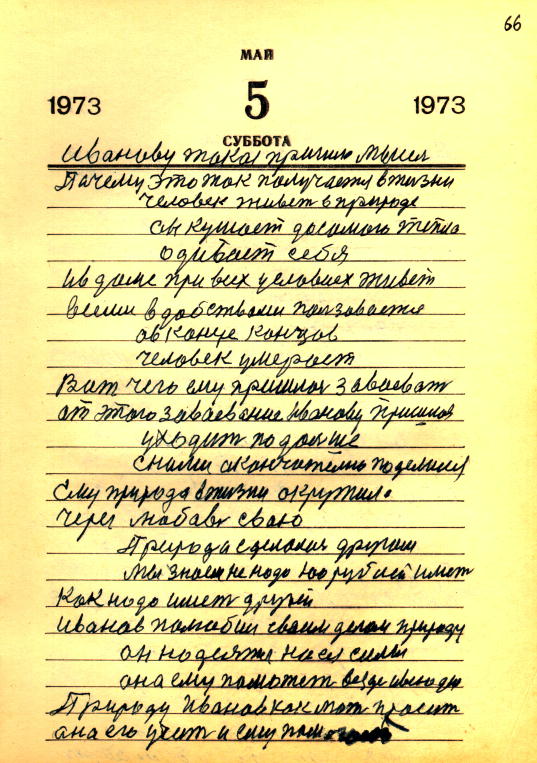 66
МАЙ
1973 5 1973
СУББОТА
Иванову такая пришла мысл
Пачему это так получается в жизни
человек живет в природе
он кушает досамого тепла
одивает себя
и в доме при всех условиех живет
всеми вдобствами ползавается
а в конце концов
человек умерает
Вот чего ему пришлос заваеват
от этого заваевание Иванову пришлос
уходит подальше
с ними окончателно поделился
Ему природа в жизни окружила
через любавь сваю
Природа сделалас другом
мы знаем не надо 100 рублей имет
как надо имет друзей
Иванов полюбил своим делом природу
он наделяться силы
она ему поможет везде
Природу Иванов как мат просит
она его учит и ему